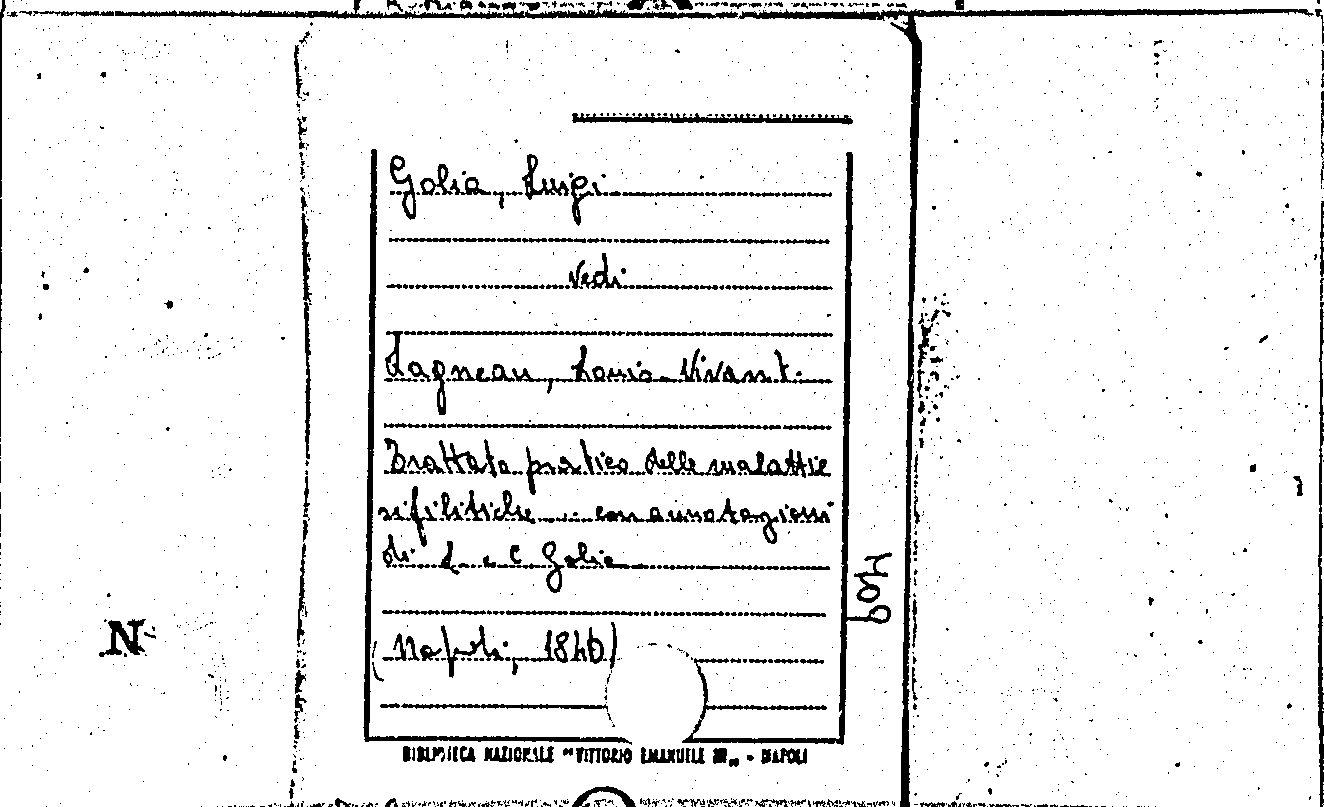 Golia, Luigi
Vedi
Lagneau, Louis Vivant.
Trattato pratico delle malattie
sifilitiche ... con annotazioni
di L. e C. Golia
(Napoli, 1840)
BIBLIOTECA NAZIONALE "VITTORIO EMANUELE III„ - NAPOLI
N